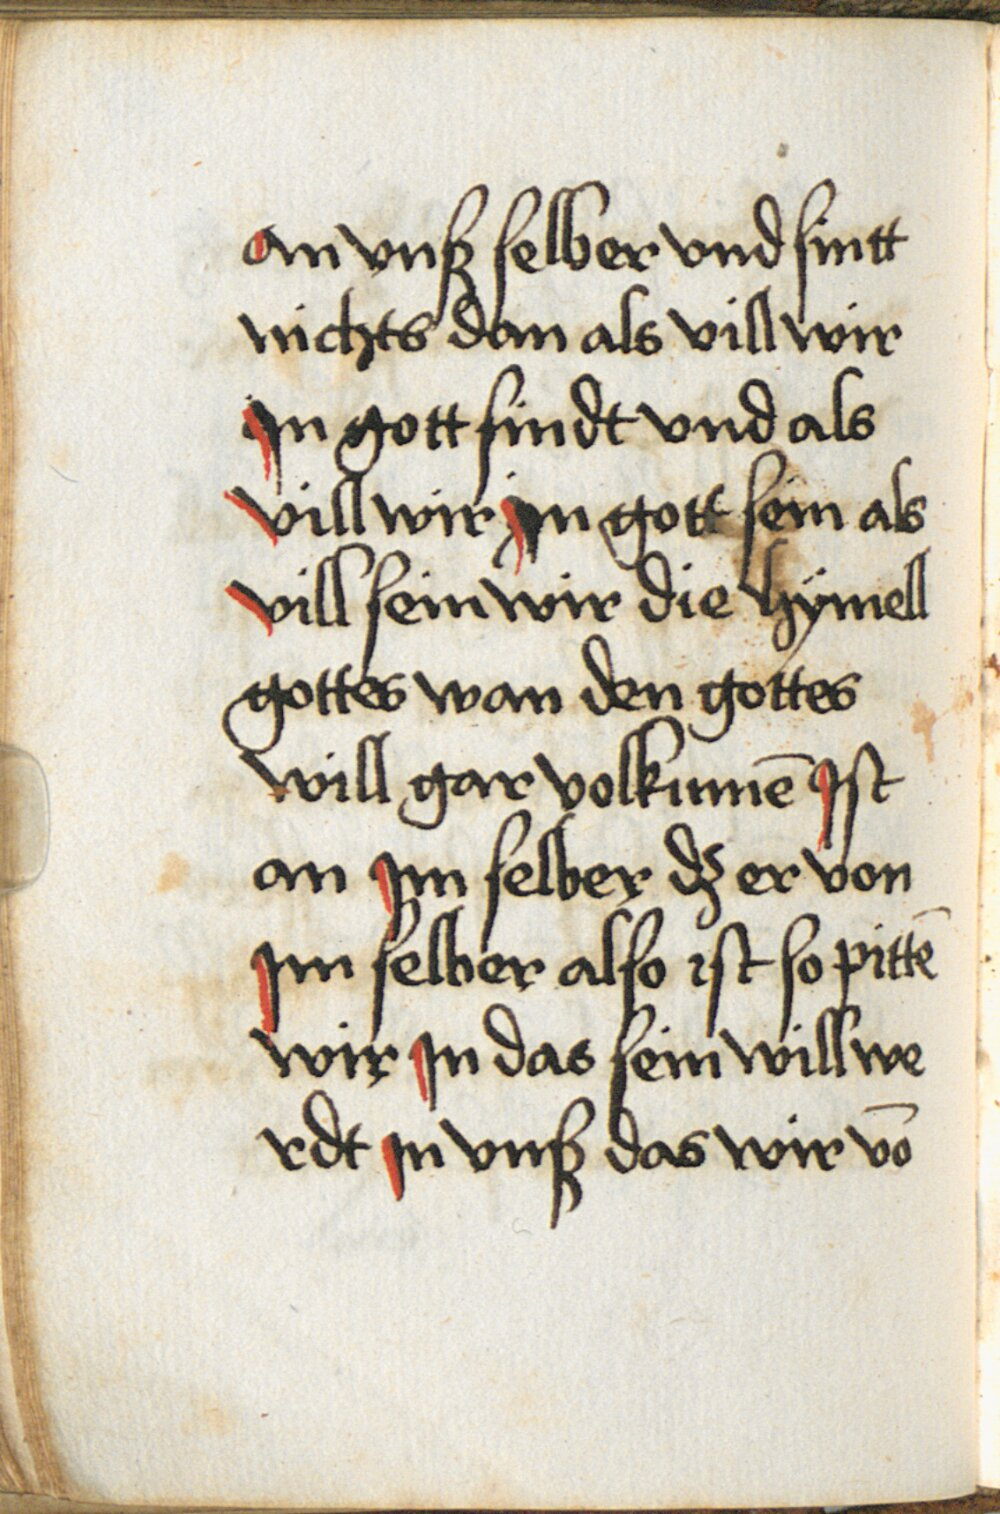 an vnß selber vnd sintt
nichts dan als vill wir
Jn gott sindt vnd als
vill wir jn gott sein als
vill sein wir die hÿmell
gottes wan den gottes
will gar volkumē Jst
an Jm selber dʒ er von
Jm selber also ist so pittē
wir Jn das sein will we
rdt Jn vnß das wir vō